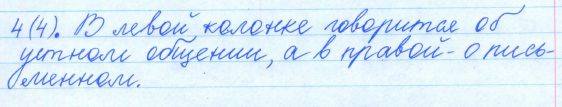 4(4). В левой колонке говорится об
устном общении, а в правой - о пись-
менном.